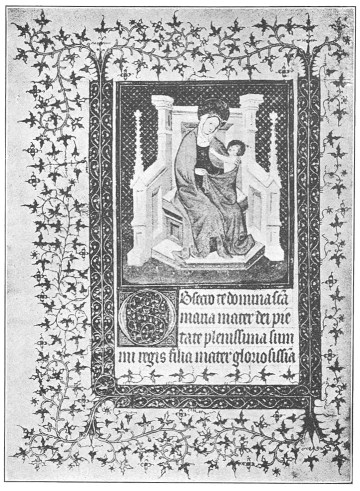 Obsecro te domina sca
maria mater dei pie
tate plenissima sum
mi regis filia mater gloriosissia